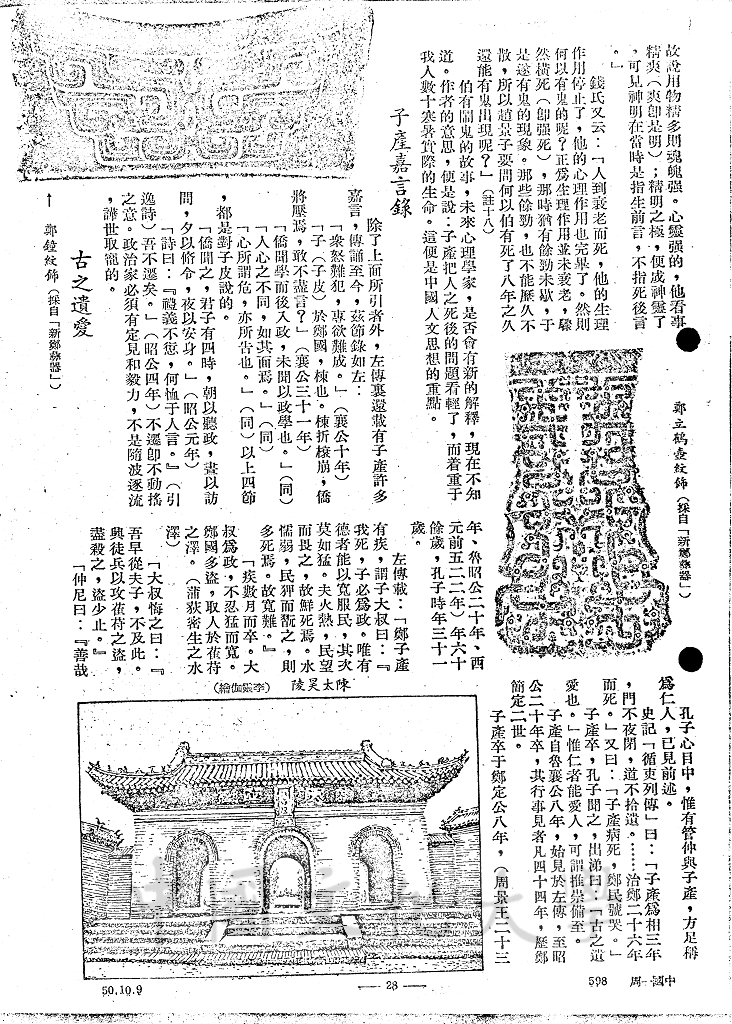 故說用物精多則魂魄强。心靈强的，他看事
精爽（爽卽是明）；精明之極，便成神靈了
，可見神明在當時是指生前言，不指死後言
。」
錢氏又云：「人到衰老而死，他的生理
作用停止了，他的心理作用也完畢了。然則
何以有鬼的呢？正爲生理作用並未衰老，驟
然橫死（卽强死），那時猶有餘勁未歇，于
是遂有鬼的現象。那些餘勁，也不能歷久不
散，所以趙景子要問何以伯有死了八年之久
還能有鬼出現呢？」（註十八）
伯有鬧鬼的故事，未來心理學家，是否會有新的解釋，現在不知
道。作者的意思，便是說：子產把人之死後的問題看輕了，而着重于
我人數十寒暑實際的生命。這便是中國人文思想的重點。
子產嘉言錄
除了上面所引者外，左傳裏還載有子產許多
嘉言，傳誦至今，茲節錄如左：
「衆怒難犯，專欲難成。」（襄公十年）
「子（子皮）於鄭國，棟也。棟折榱崩，僑
將厭焉，敢不盡言？」（襄公三十一年）
「僑聞學而後入政，未聞以政學也。」（同）
「人心之不同，如其面焉。」（同）
「心所謂危，亦所告也。」（同）以上四節
，都是對子皮說的。
「僑聞之，君子有四時，朝以聽政，晝以訪
問，夕以修令，夜以安身。」（昭公元年）
「詩曰：『禮義不愆，何恤于人言。』（引
逸詩）吾不遷矣。」（昭公四年）不遷卽不動搖
之意。政治家必須有定見和毅力，不是隨波逐流
，譁世取寵的。
古之遺愛
↑ 鄭鐘紋飾（採自「新鄭彝器」）
鄭立鶴壺紋飾（採自「新鄭彝器」）
孔子心目中，惟有管仲與子產，方足稱
爲仁人，已見前述。
史記「循吏列傳」曰：「子產爲相三年
，門不夜閉，道不拾遺。……治鄭二十六年
而死。」又曰：「子產病死，鄭民號哭。」
子產卒，孔子聞之，出涕曰：「古之遺
愛也。」惟仁者能愛人，可謂推崇備至。
子產自魯襄公八年，始見於左傳，至昭
公二十年卒，其行事見者凡四十四年，歷鄭
簡定二世。
子產卒于鄭定公八年，（周景王二十三
年、魯昭公二十年、西
元前五二二年）年六十
餘歲，孔子時年三十一
歲。
左傳載：「鄭子產
有疾，謂子大叔曰：『
我死，子必爲政。唯有
德者能以寬服民，其次
莫如猛。夫火熱，民望
而畏之，故鮮死焉。水
懦弱，民狎而翫之，則
多死焉。故寬難。』
「疾數月而卒。大
叔爲政，不忍猛而寬。
鄭國多盜，取人於萑苻
之澤。（蒲荻密生之水
澤）
「大叔悔之曰：『
吾早從夫子，不及此。
與徒兵以攻萑苻之盜，
盡殺之，盜少止。』
「仲尼曰：『善哉
陳太昊陵（李靈伽繪）
50.10.9
— 28 —
598
中國一周